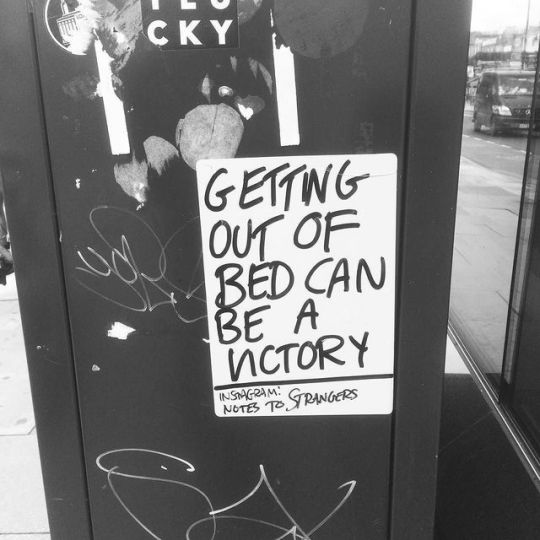 CKY
GETTING
OUT OF
BED CAN
BE A
VICTORY
INSTAGRAM:
NOTES TO STRANGERS